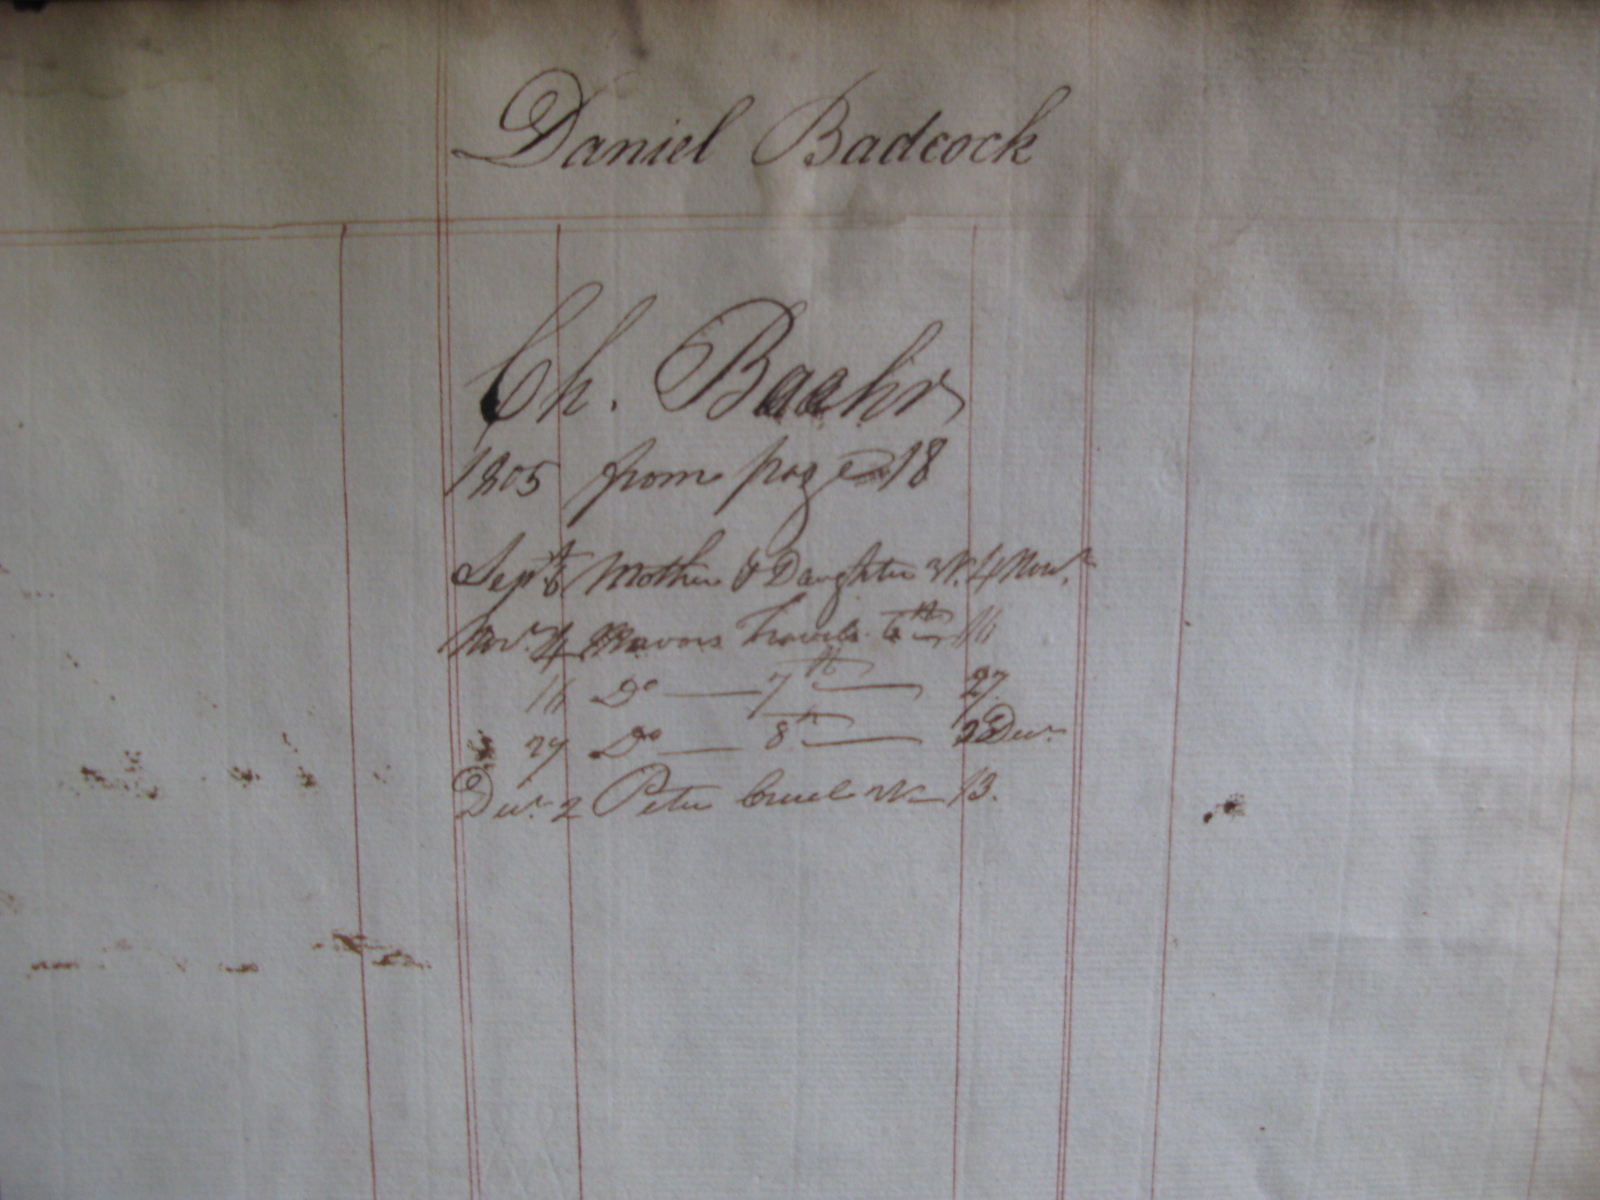 Daniel Badcock
Ch. Baehr
1805 from page 18
Sept 6 Mother & Daughter 4 Novr
Novr 4 Mavors Travels 6th 16
16 Do 7th 27
27 Do 8th 2 Decr
Decr 2 Peter 13.